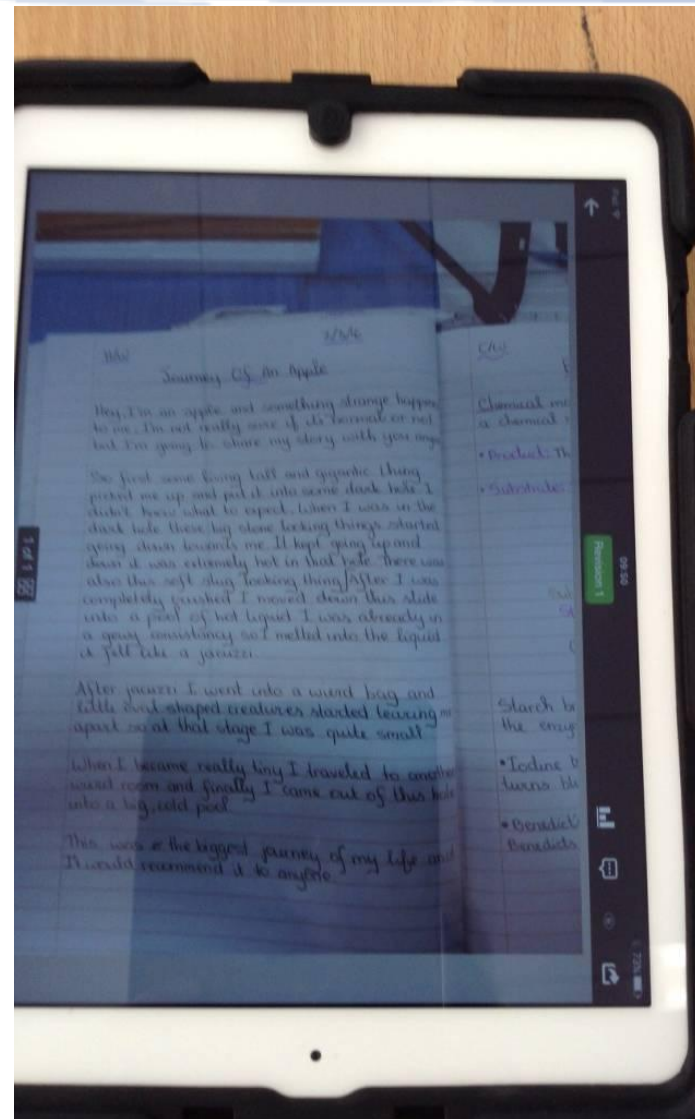 09:50
72%
Revision 1
1 of 1
H/W
7/3/16
Journey Of An Apple
Hey, I'm an apple and something strange happen
to me. I'm not really sure if it's normal or not
but I'm going to share my story with you
So first some living tall and gigantic thing
picked me up and put it into some dark hole I
didn't know what to expect. When I was in the
dark hole these big stone looking things started
going down towards me. It kept going up and
down it was extremely hot in that hole there was
also this soft slug looking thing. After I was
completely I moved down this slide
into a pool of hot liquid I was already in
a gouy consistancy so I melted into the liquid
it felt like a jacuzzi.
After jacuzzi I went into a wierd bag and
little oval shaped creatures started tearing me
apart so at that stage I was quite small
When I became really tiny I traveled to another
wierd room and finally I came out of this hole
into a big, cold pool
This was the biggest journey of my life and
I would recommend it to anyone.
C/W
Chemical
a chemical
• Product: Th
• Substrate:
Starch b
the enzy
• Iodine
turns bl
• Benedict
Benedicts